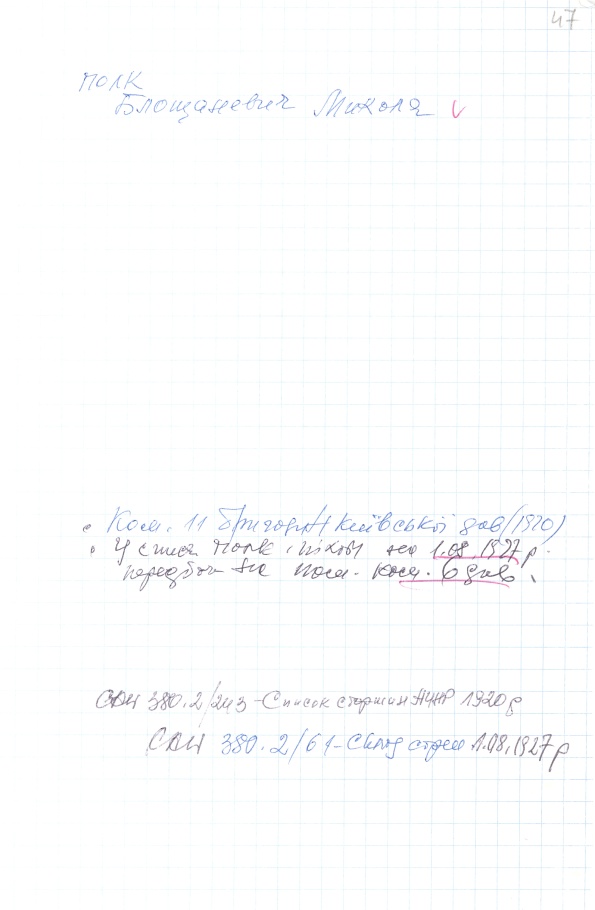 47
полк
Блощаневич Микола
Ком. 11 бригади 4 Київської див (1920)
У спис полк. піхоти на 1.08.1927 р.
передбач на пом. ком. 6 див.
380.2/243 - Список старшин 1920 р
380.2/61 - Склад 1.08.1927 р